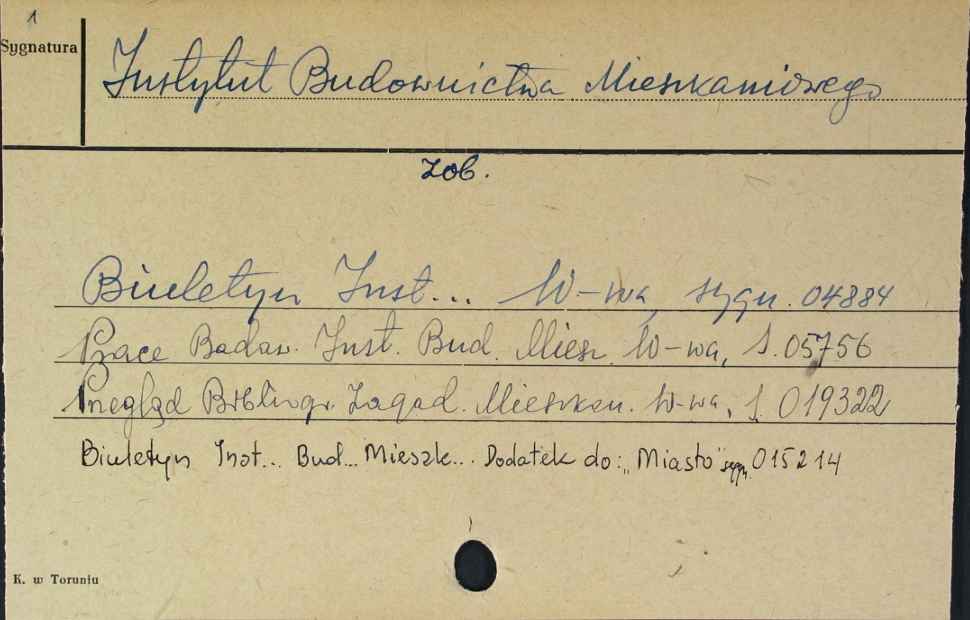 1
Sygnatura
Instytut Budownictwa Mieszkaniowego
zob.
Biuletyn Inst... W-wa sygn. 04884
Prace Badaw. Inst. Bud. Miesz W-wa, S. 05756
Przegląd Bibliogr. Zagad. Mieszkan. W-wa, S. 019322
Biuletyn Inst... Bud... Mieszk... Dodatek do: „Miasto" sygn. 015214
K. w Toruniu